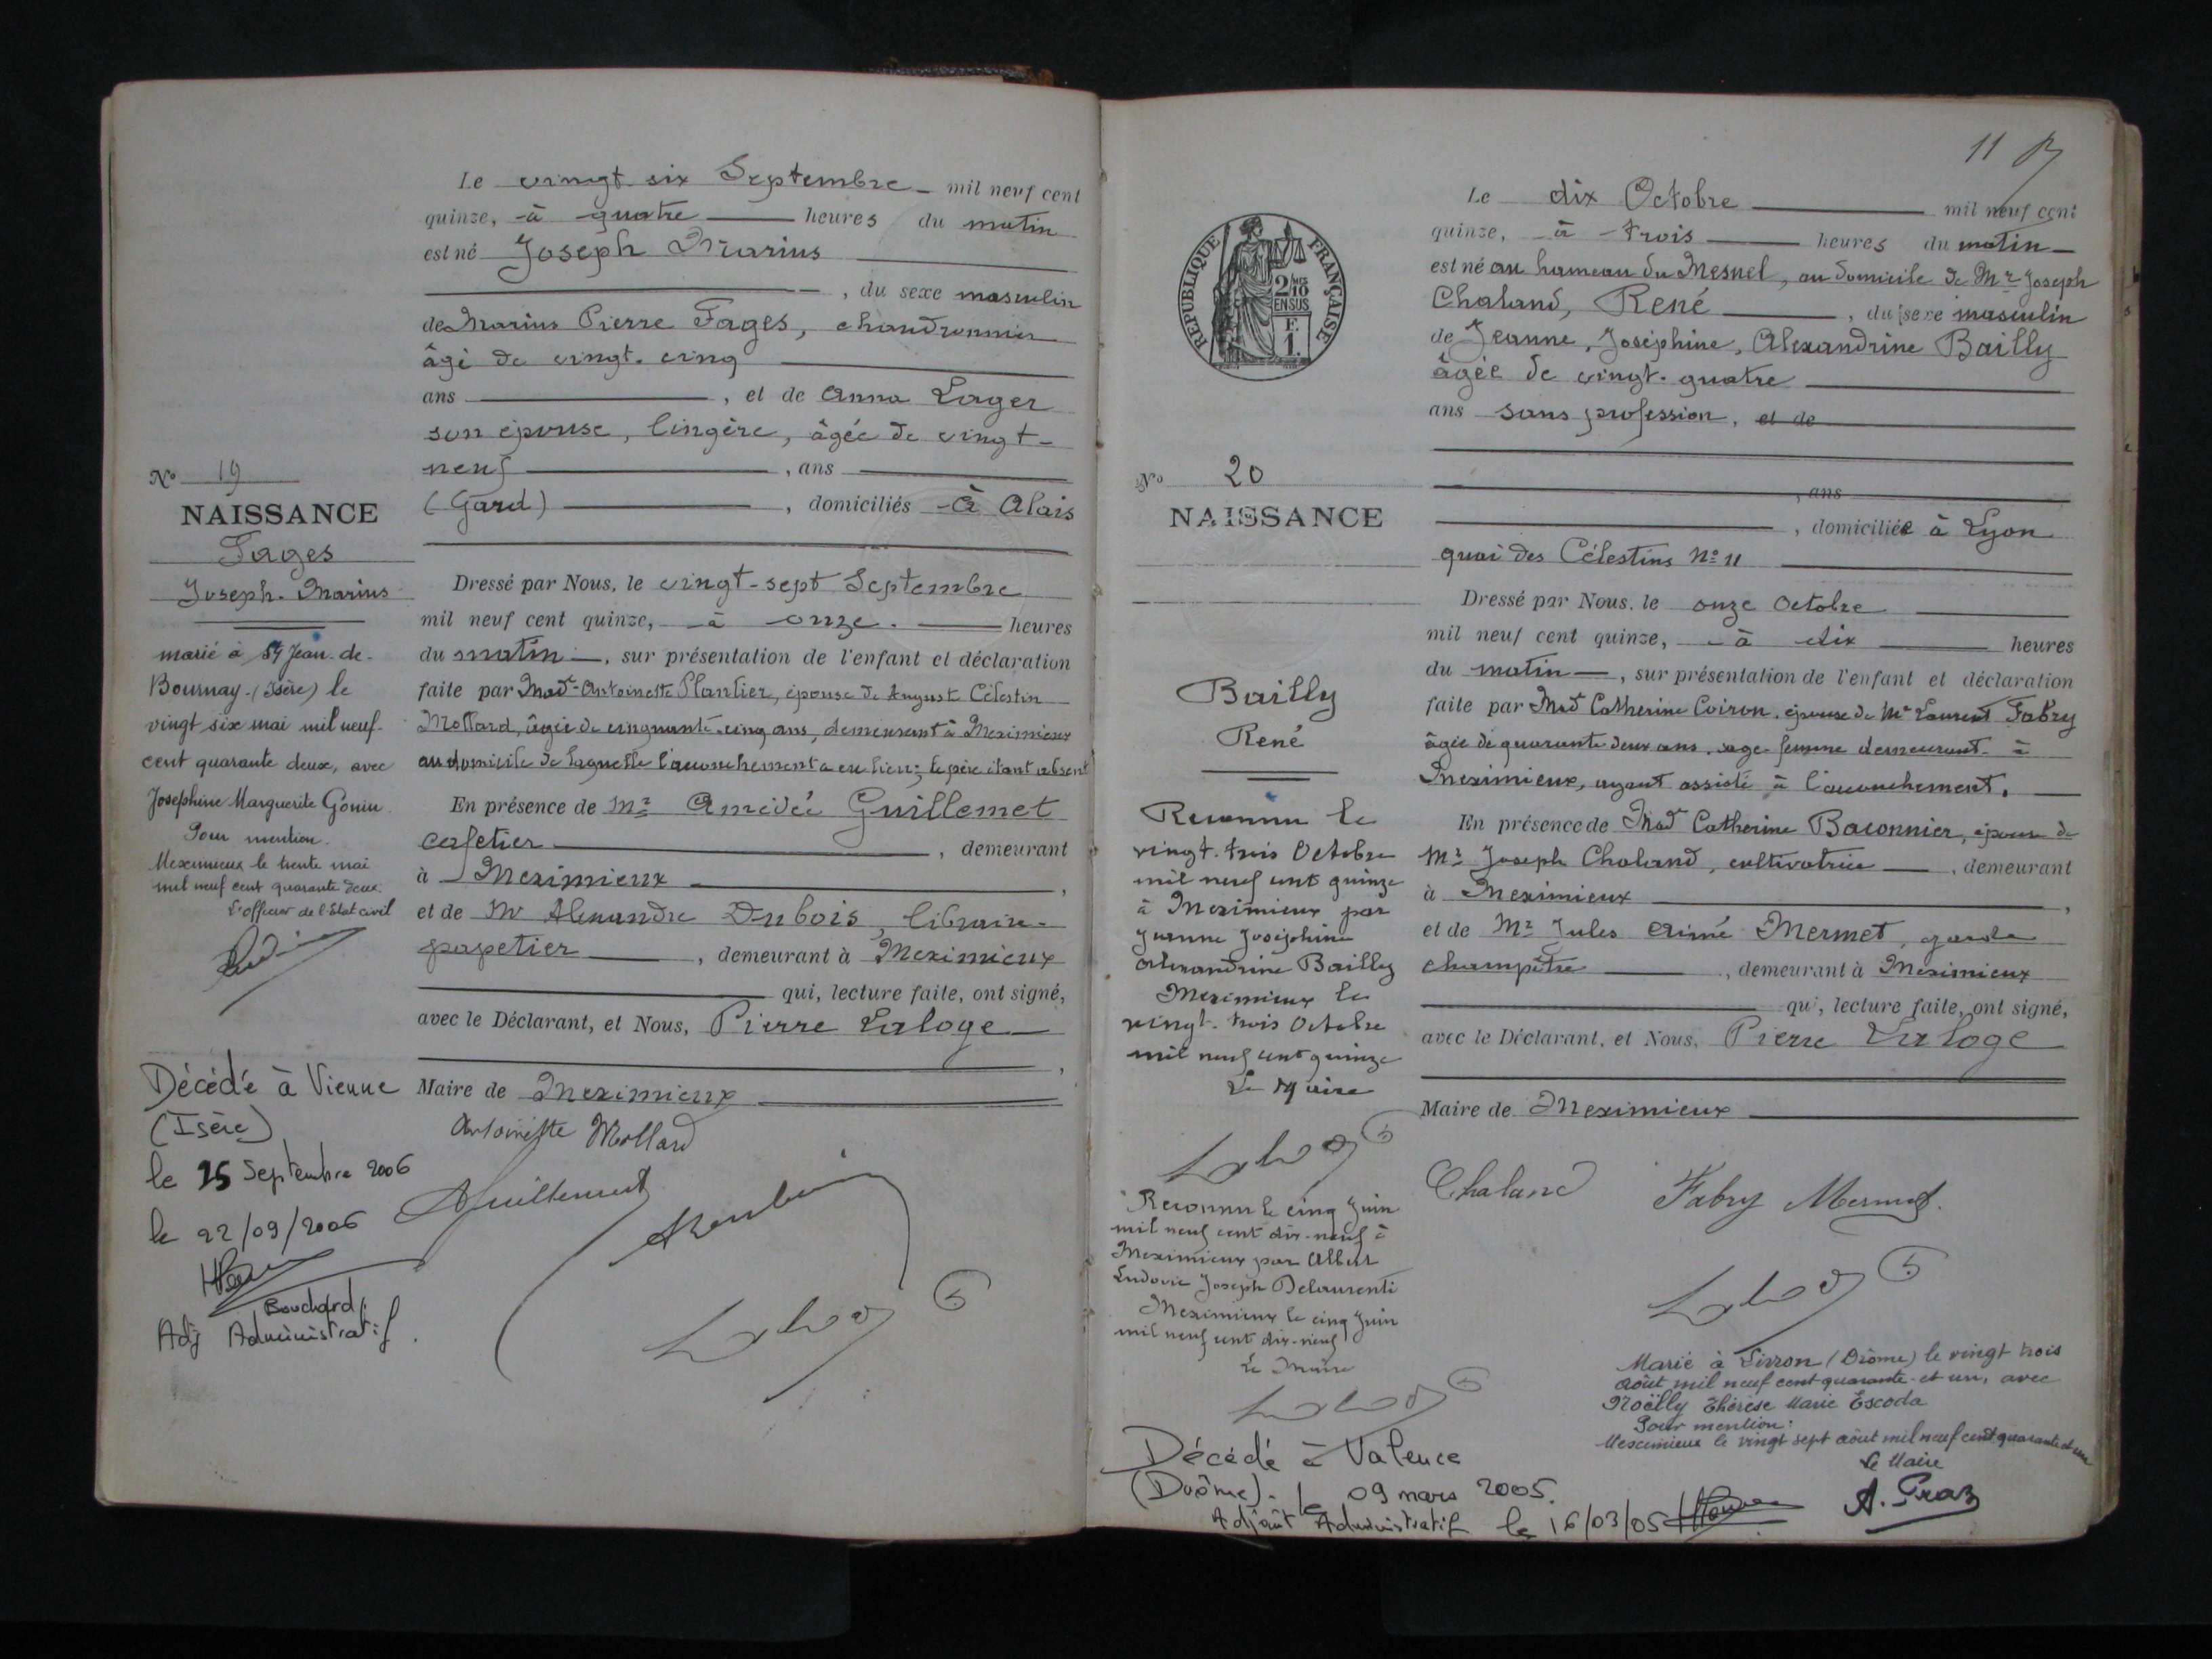 Le vingt six Septembre mil neuf cent
quinze, à quatre heures du matin
est né Joseph Marius
, du sexe masculin
de Marius Pierre Fages, chaudronnier
âgé de vingt-cinq
ans , et de Anna Lager
son épouse, lingère, âgée de vingt-
neuf , ans
(Gard) , domiciliés à Alais
Dressé par Nous, le vingt-sept Septembre
mil neuf cent quinze, à onze heures
du matin, sur présentation de l'enfant et déclaration
faite par Mad. Antoinette Plantier, épouse de August Célestin
Mollard, âgée de cinquante-cinq ans, demeurant à Meximieux
au domicile de laquelle l'accouchement a eu lieu; le père étant absent
En présence de Mr Amédée Guillemet
cafetier , demeurant
à Meximieux ,
et de Mr Alexandre Dubois, libraire-
papetier , demeurant à Meximieux
qui, lecture faite, ont signé,
avec le Déclarant, et Nous, Pierre Laloge
,
Maire de Meximieux
Antoinette Mollard
AGuillemet
No 19
NAISSANCE
Fages
Joseph-Marius
marié à St Jean-de-
Bournay-(Isère) le
vingt six mai mil neuf-
cent quarante deux, avec
Joséphine Marguerite Gonin
Pour mention.
Meximieux le trente mai
mil neuf cent quarante deux.
L'officier de l'Etat civil
Décédé à Vienne
(Isère)
le 15 Septembre 2006
le 22/09/2006
Bouchard
Adj Administratif.
11
Le dix Octobre mil neuf cent
quinze, à trois heures du matin
est né au hameau du Mesnel, au domicile de Mr Joseph
Chaland, René , du sexe masculin
de Jeanne, Joséphine, Alexandrine Bailly
âgée de vingt-quatre
ans sans profession, et de
, ans
, domiciliée à Lyon
quai des Célestins No 11
Dressé par Nous, le onze Octobre
mil neuf cent quinze, à dix heures
du matin, sur présentation de l'enfant et déclaration
faite par Mad Catherine Coiron, épouse de Mr Laurent Fabry
âgée de quarante deux ans, sage-femme demeurant à
Meximieux, ayant assisté à l'accouchement.
En présence de Mad Catherine Baconnier, épouse de
Mr Joseph Chaland, cultivatrice , demeurant
à Meximieux ,
et de Mr Jules Aimé Mermet, garde
champêtre , demeurant à Meximieux
qui, lecture faite, ont signé,
avec le Déclarant, et Nous, Pierre Laloge
Maire de Meximieux
Chaland Fabry Mermet.
Marié à Livron (Drôme) le vingt trois
août mil neuf cent quarante-et un, avec
Noëlly Thérèse Marie Escoda
Pour mention:
Meximieux le vingt sept août mil neuf cent quarante et un
Le Maire
REPUBLIQUE FRANÇAISE
2/10
EN SUS
F.
1.
No 20
NAISSANCE
Bailly
René
Reconnu le
vingt-trois Octobre
mil neuf cent quinze
à Meximieux par
Jeanne Joséphine
Alexandrine Bailly
Meximieux le
vingt-trois Octobre
mil neuf cent quinze
Le Maire
Reconnu le cinq Juin
mil neuf cent dix-neuf à
Meximieux par Albert
Ludovic Joseph Delaurenti
Meximieux le cinq Juin
mil neuf cent dix-neuf
Le Maire
Décédé à Valence
(Drôme). le 09 mars 2005.
Adjoint Administratif le 16/03/05